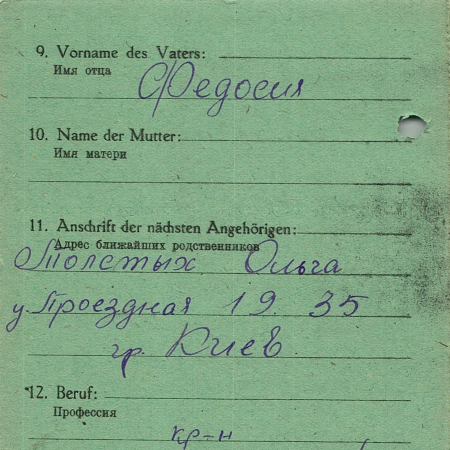 9. Vorname des Vaters:
Имя отца
Федосия
10. Name der Mutter:
Имя матери
11. Anschrift der nächsten Angehörigen:
Адрес ближайших родственников
Толстых Ольга
у. Проездная 19. 35
гр. Киев
12. Beruf:
Профессия
кр-н